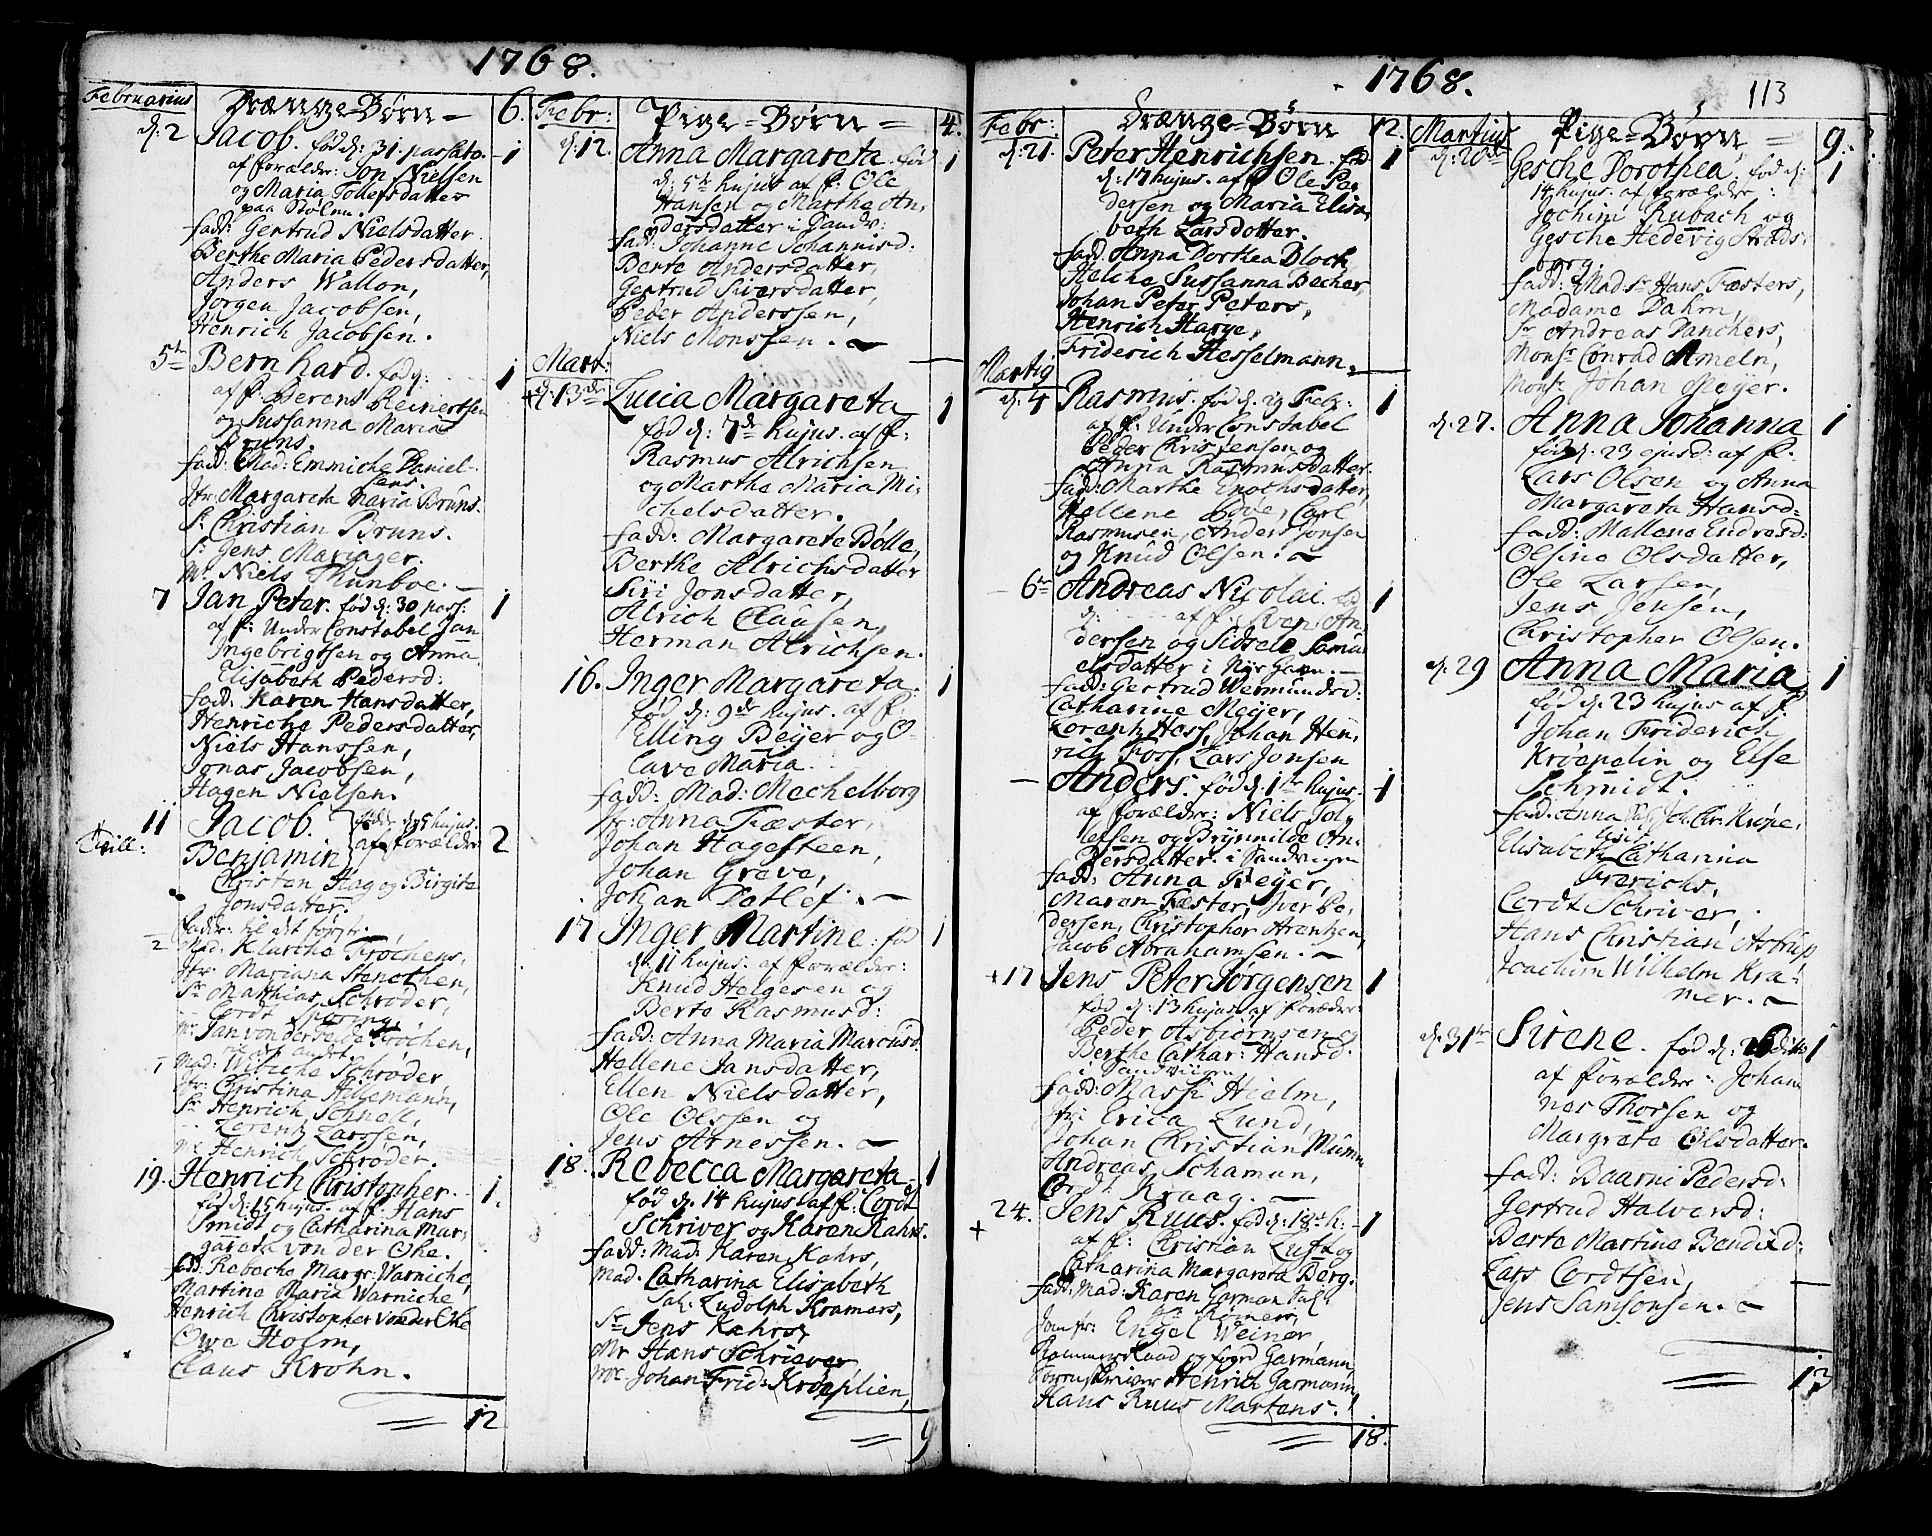 1768.
Februarius
Drænge-Børn
6.
d: 2
Jacob. fød d: 31. passato.
1
af forælder: Jon Nielsen
og Maria Tollefsdatter
paa Stølen.
fadd: Gertrud Nielsdatter
Berthe Maria Pedersdatter,
Anders Wallon,
Jørgen Jacobsen,
Henrich Jacobsen.
5te
Bernhard. fød d:
1
af f. Berent Reinertsen
og Sussanna Maria
Bruns.
fadd: Mad: Emmiche Daniel-
sens.
Jfr: Margareta Maria Bruns.
Sr Christian Bruns.
Sr Jens Mariager.
Mr. Niels Thunboe.
7
Jan Peter. fød d: 30 pass:
1
af f: Under Constabel Jan
Ingebrigtsen og Anna
Elisabeth Pedersd:
fadd: Karen Hansdatter,
Henriche Pedersdatter,
Niels Hanssen,
Jonas Jacobsen,
Hagen Nielsen.
11
Tvill:
Jacob.
Benjamin
fødde d: 5 hujus.
af forælder
2
Christen Hag og Birgita
Jonsdatter.
fadder til det første.
Mad: Klarche Frøchens,
Jfr: Mariana Stenothen,
Sr Matthias Schrøder,
Cordt Sparing,
Mr: Jan von der Velde Frøchen,
til det andet.
Mad: Wibiche Schrøder
Jfr: Christina Hilgemann,
Sr Henrich Schnell,
Lorentz Larssen,
Mr Henrich Schrøder.
19.
Henrich Christopher.
1.
fød d: 15 hujus. af f: Hans
Smidt og Catharina Mar-
gareta von der Ohe.
fadd: Rebecke Margr: Warniche,
Martina Maria Warniche
Henrich Christopher von der Ehe
Owe Holm,
Claus Krohn.
12
Febr:
Pige-Børn
4.
d: 12.
Anna Margareta. fød
1
d: 5te hujus af f: Ole
Hansen og Marthe An-
dersdatter i Sandv:
fadd: Johanne Johannisd.
Berte Andersdatter,
Gertrud Siversdatter,
Peder Anderssen,
Niels Monssen.
Mart:
d: 13de
Lucia Margareta
1
fød d: 7de hujus. af f:
Rasmus Alrichsen
og Marthe Maria Mi-
chelsdatter.
fadd: Margarete Bølle,
Berthe Alrichsdatter
Siri Jonsdatter,
Alrich Clausen,
Herman Alrichsen.
16.
Inger Margareta.
1
fød d: 9de hujus. af f.
Elling Beyer og O-
lave Maria
fadd: Mad: Mechelborg
Jfr: Anna Fæster,
Johan Hagesteen,
Johan Greve,
Johan Detlef.
17
Inger Martine: fød
1
d: 11 hujus. af forælder:
Knud Helgesen og
Berte Rasmusd:
fadd: Anna Maria Marcusd.
Hellene Jansdatter,
Ellen Nielsdatter,
Ole Olssen og
Jens Arnessen.
18.
Rebecca Margareta
1
fød d. 14 hujus af f: Cordt
Schriver og Karen Kahrs.
fadd: Mad: Karen Kahrs,
Mad. Catharina Elisabeth
Sal: Ludolph Kramers,
Sr Jens Kahrs,
Mr Hans Schriever,
Mr Johan Frid: Krøeplien,
9
1768.
113
Febr:
Drænge-Børn
12.
d: 21.
Peter Henrichsen. fød
1
d: 17 hujus. af f Ole Pe-
dersen og Maria Elisa-
beth Larsdotter.
fadd: Anna Dorthea Bloch
Helche Sussanna Becher,
Johan Peter Peters,
Henrich Harye,
Friderich Hesselmann.
Martig
d: 4
Rasmus. fød d. 29 Feb:
1
af f. Under Constabel
Peder Christensen og
Anna Rasmusdatter.
fadd: Marthe Enochsdatter,
Hellene Love, Carl
Rasmusen, Anders Jonsen
og Knud Olsen.
6te
Andreas Nicolai. fød
1
d: af f: Sven An-
dersen og Sidsele Samu-
elsdatter i Nyr Gavn.
fadd: Gertrud Wermundsd:
Catharine Meyer,
Lorentz Hess, Johan Hen-
rich Foss, Lars Jonsen
Anders. fød d. 1te hujus.
1
af forælder: Niels Tol-
lefsen og Brynnilde An-
dersdatter. i Sandvigen
fadd: Anna Beyer,
Maren Fæster, Iver Pe-
dersen, Christopher Arentzen,
Jacob Abrahamsen.
17
Jens Peter Jorgensen
1
fød d. 13 hujus af foræder:
Peder Asbiørnsen og
Berthe Cathar: Hansd.
i Sandviigen
fadd: Massi Hielm,
Jfr: Erica Lund,
Johan Christian Mumm
Andreas Schaman,
Cordt Kraag.
24.
Jens Ruus. fød d: 18de h.
1
af f: Christian Luft og
Catharina Margareta Berg.
fadd: Mad: Karen Garman Sal.
Hr Rømers,
Jomfr: Engel Weiner,
Kammerraad og fogd Garmann,
Sorenskriver Henrich Garmann,
Hans Ruus Martens.
18.
Martius
Pige-Børn
9.
d: 20de
Gesche Dorothea. fød d:
1
14 hujus. af forælder:
Jochim Rubach og
Gesche Hedevig Strids-
borg.
fadd: Mads: Hans Fæsters,
Madame Dahm,
Sr Andreas Danchers,
Monsr Conrad Ameln,
Monsr Johan Meyer.
d. 27.
Anna Johanna
1
fød d. 23 ejusd: af f.
Lars Olsen og Anna
Margareta Hansd:
fadd: Mallene Endresd:
Olsine Olsdatter,
Ole Larsen,
Jens Jensen,
Christopher Olsen.
d. 29
Anna Maria
1
fød d. 23 hujus af f.
Johan Friderich
Krøepelin og Else
Schmidt.
fad. Anna Sal Joh Chr. Krøpe-
lins
Elisabeth Catharina
Frerichs,
Cordt Schriver,
Hans Christian Astrup
Joachim Wilhelm Kra-
mer.
d. 31te
Sirene. fød d. 26 dito
1
af forælder: Johan
nes Thorsen og
Margrete Olsdatter.
fadd: Baarni Pedersd:
Gertrud Halversd:
Berte Martine Bendixd:
Lars Cordtsen,
Jens Samsonsen.
13